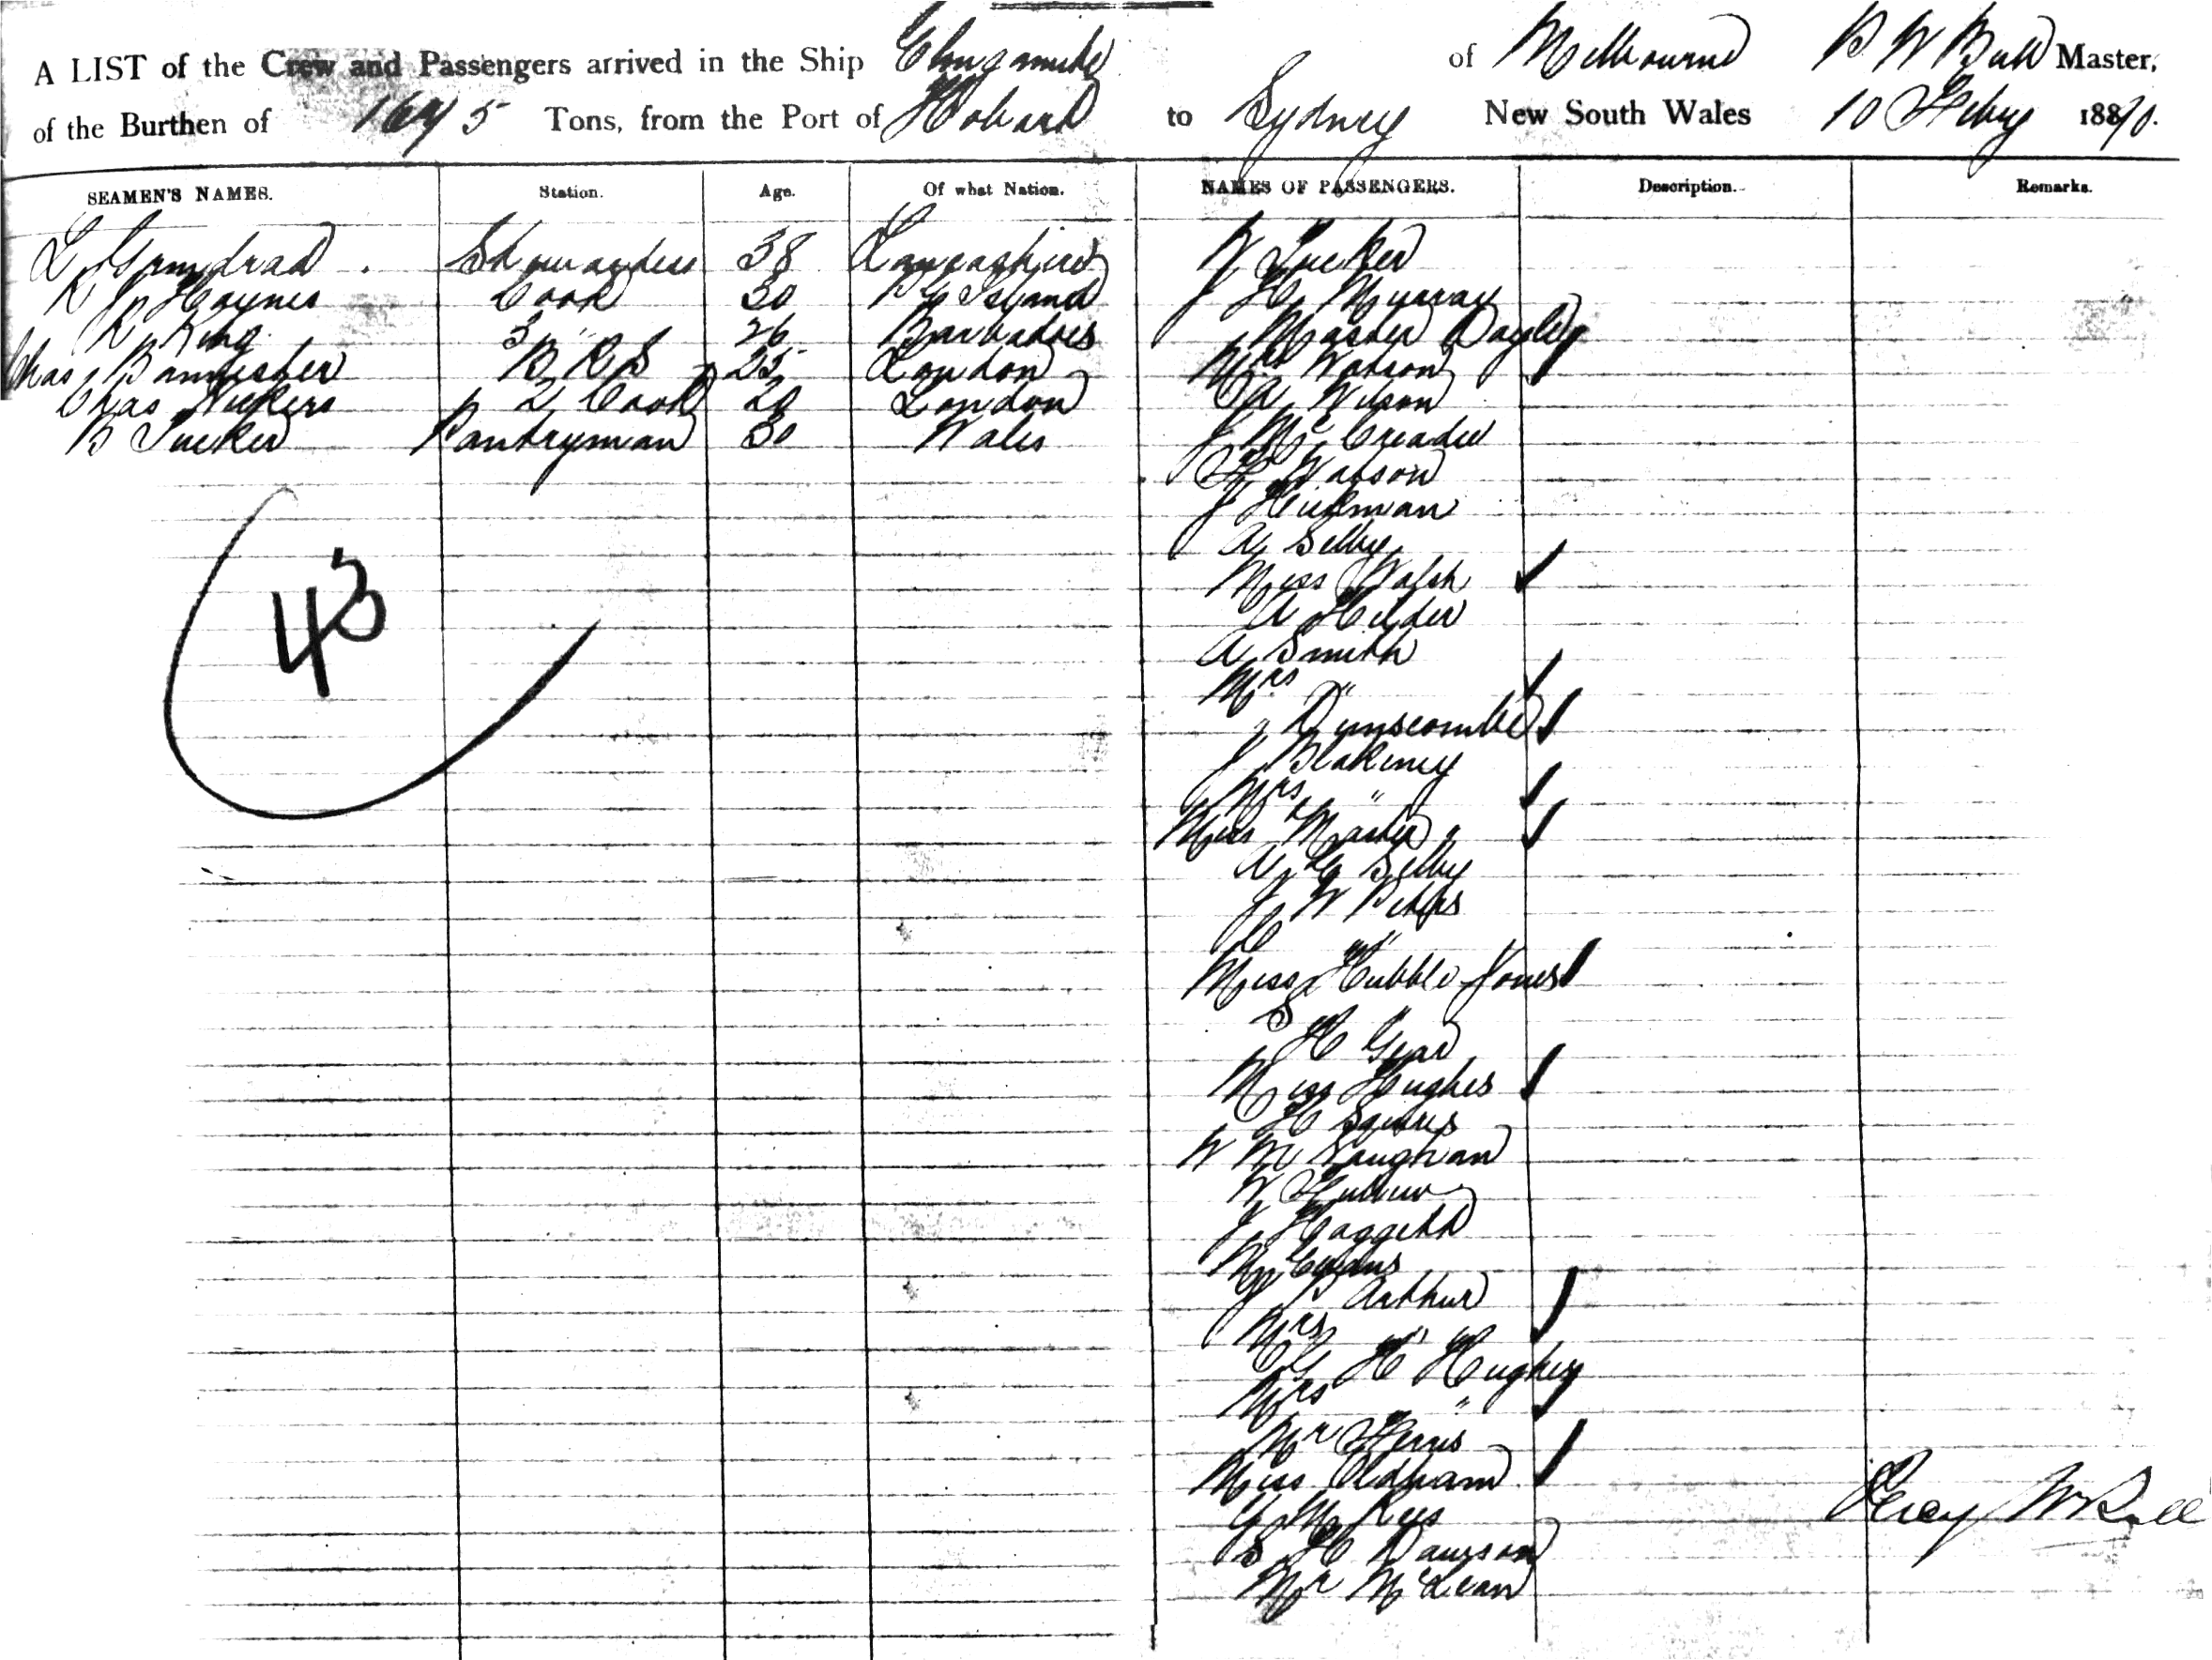 A LIST of the Crew and Passengers arrived in the Ship Elingamite of Melbourne P W Bull Master,
of the Burthen of 1675 Tons, from the Port of Hobart to Sydney New South Wales 10 Feby 1890.
SEAMEN'S NAMES. Station. Age. Of what Nation. NAMES OF PASSENGERS. Description. Remarks.
L Stewardess 38 Lancashire W Tucker
Haynes Cook 30 Island J H Murray
R King 3 " 26 Barbadoes Master Bayley
Chas Bannister B R S 25 London Mrs Watson
Chas Vickers 2 Cook 20 London A Wilson
B Tucker Pantryman 30 Wales J McCreadie
H Watson
J Hickman
A Selby
Miss Walsh
A Hilder
A Smith
Mrs "
" Dunscombe
J Blakeney
Mrs "
Miss & Master "
A G Selby
J W Peters
C "
Miss Hubble Jones
S
H Gear
Miss Hughes
H Squires
W M Vaughan
W
J Haggett
M Evans
J P Arthur
Mrs "
C G H Hughes
Mrs "
Mr Ferris
Miss Oldham
G M Rees
S H Dawson
Mr McLean
43
Percy W Bull